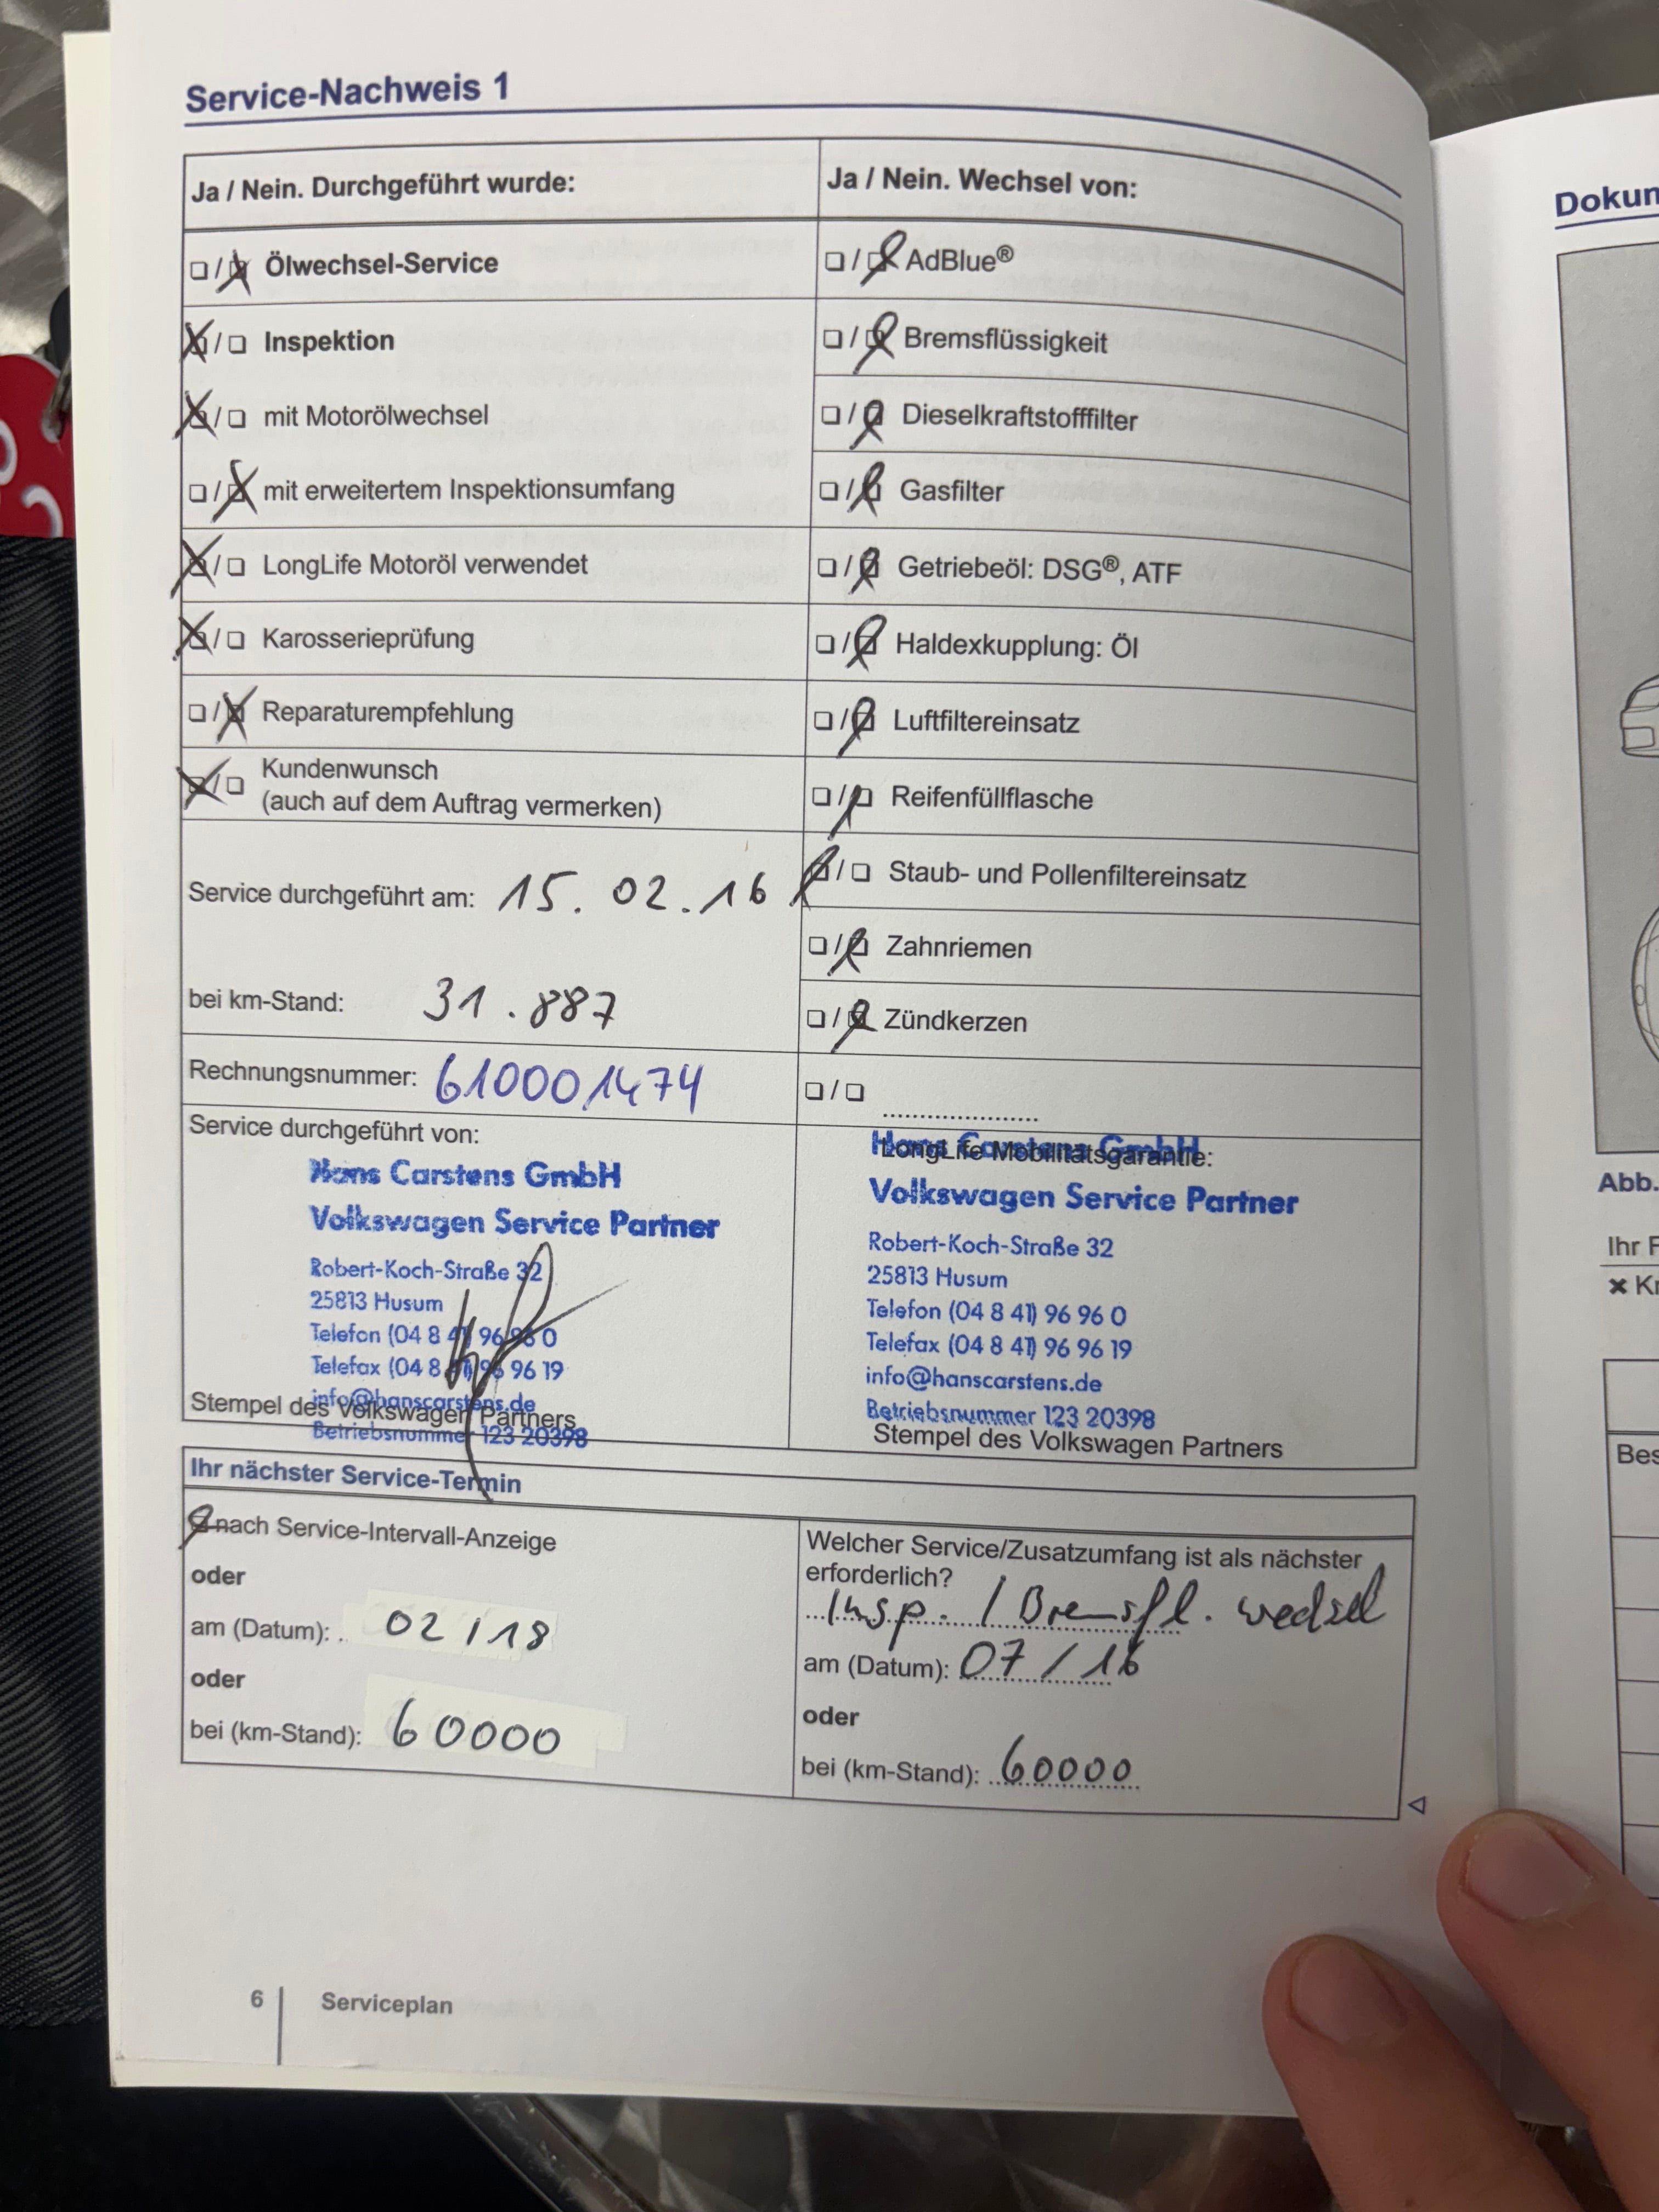 Service-Nachweis 1
Ja / Nein. Durchgeführt wurde:
☐/☒ Ölwechsel-Service
☒/☐ Inspektion
☒/☐ mit Motorölwechsel
☐/☒ mit erweitertem Inspektionsumfang
☒/☐ LongLife Motoröl verwendet
☒/☐ Karosserieprüfung
☐/☒ Reparaturempfehlung
☒/☐ Kundenwunsch
(auch auf dem Auftrag vermerken)
Service durchgeführt am: 15. 02. 16
bei km-Stand: 31.887
Rechnungsnummer: 610001474
Service durchgeführt von:
Hans Carstens GmbH
Volkswagen Service Partner
Robert-Koch-Straße 32
25813 Husum
Telefon (04 8 41) 96 96 0
Telefax (04 8 41) 96 96 19
info@hanscarstens.de
Stempel des Volkswagen Partners
Betriebsnummer 123 20398
Ja / Nein. Wechsel von:
☐/☒ AdBlue®
☐/☒ Bremsflüssigkeit
☐/☒ Dieselkraftstofffilter
☐/☒ Gasfilter
☐/☒ Getriebeöl: DSG®, ATF
☐/☒ Haldexkupplung: Öl
☐/☒ Luftfiltereinsatz
☐/☒ Reifenfüllflasche
☒/☐ Staub- und Pollenfiltereinsatz
☐/☒ Zahnriemen
☐/☒ Zündkerzen
☐/☐ ......................
Hans Carstens GmbH
LongLife Mobilitätsgarantie:
Volkswagen Service Partner
Robert-Koch-Straße 32
25813 Husum
Telefon (04 8 41) 96 96 0
Telefax (04 8 41) 96 96 19
info@hanscarstens.de
Betriebsnummer 123 20398
Stempel des Volkswagen Partners
Ihr nächster Service-Termin
☒ nach Service-Intervall-Anzeige
oder
am (Datum): 02/18
oder
bei (km-Stand): 60000
Welcher Service/Zusatzumfang ist als nächster
erforderlich?
Insp. / Bremsfl. wechsel
am (Datum): 07/16
oder
bei (km-Stand): 60000
6 Serviceplan
Dokun
Abb.
Ihr F
Kr
Bes